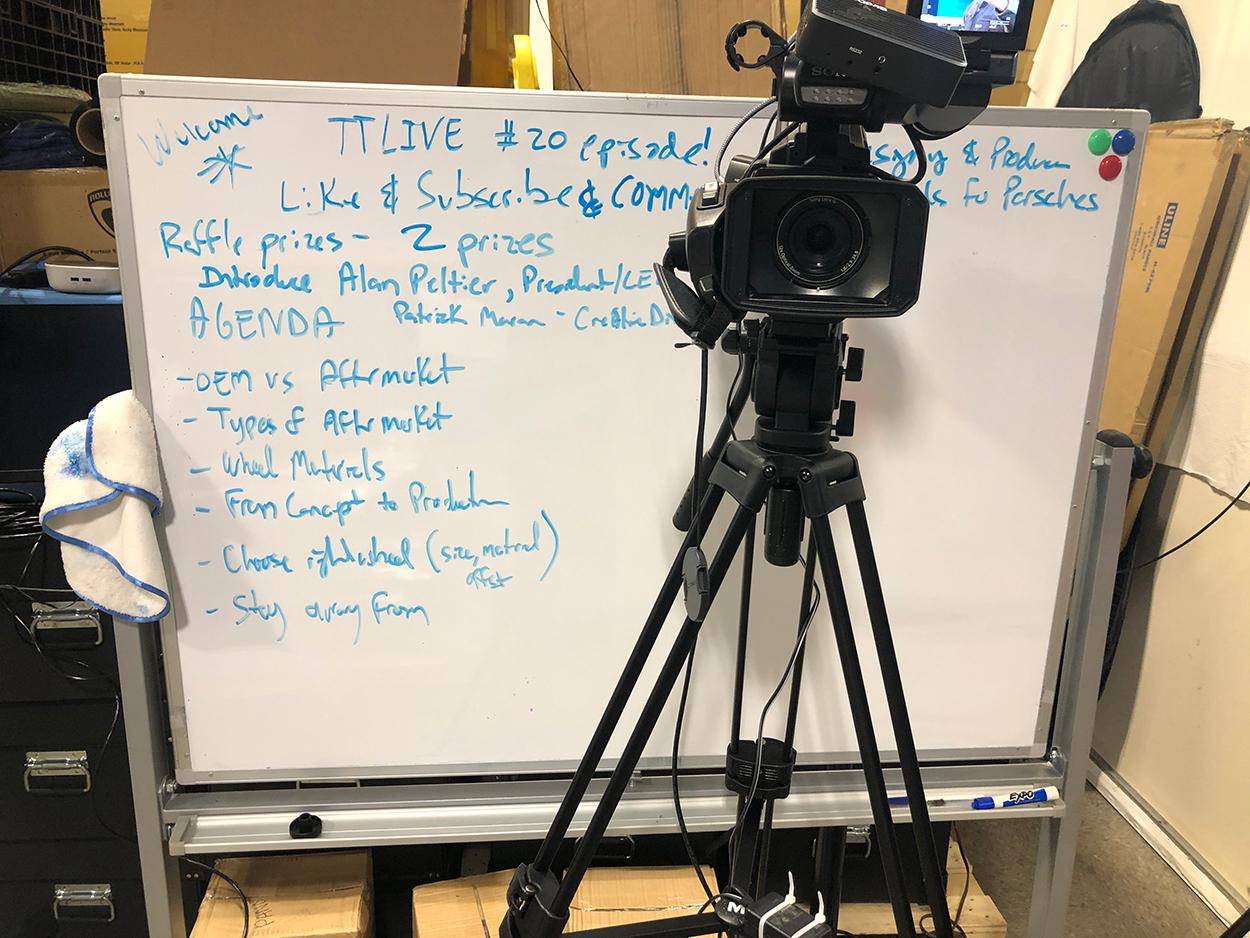 Welcome
TTLIVE #20 episode!
& Produce
Like & Subscribe & COMM
Porsches
Raffle prizes - 2 prizes
Introduce Alan Peltier, President/CE
AGENDA Patrick Moran - Creative Di
- OEM vs Aftermarket
- Types of Aftermarket
- Wheel Materials
- From Concept to Production
- Choose right wheel (size, material
offset)
- Stay away from
SONY
RS232
ULINE
EXPO